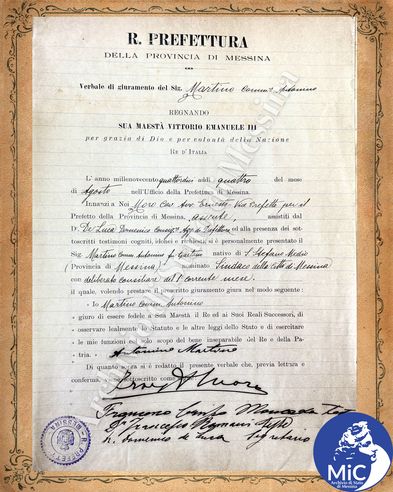 R. PREFETTURA
DELLA PROVINCIA DI MESSINA
Verbale di giuramento del Sig. Martino Comm. Antonino
REGNANDO
SUA MAESTÀ VITTORIO EMANUELE III
per grazia di Dio e per volontà della Nazione
RE D'ITALIA
L'anno millenovecento quattordici addì quattro del mese
di Agosto nell'Ufficio della Prefettura di Messina.
Innanzi a Noi Moro Cav. Avv. Ernesto Vice Prefetto per il
Prefetto della Provincia di Messina, assente, assistiti dal
D. De Luca Domenico Consigr. Agg. di Prefettura ed alla presenza dei sot-
toscritti testimoni cogniti, idonei e richiesti si è personalmente presentato il
Sig. Martino Comm. Antonino di Gaetano nativo di S. Stefano Medio
(Provincia di Messina) nominato Sindaco della città di Messina
con deliberato consiliare del 1° corrente mese
il quale, volendo prestare il prescritto giuramento giura nel modo seguente :
- Io Martino Comm. Antonino
giuro di essere fedele a Sua Maestà il Re ed ai Suoi Reali Successori, di
osservare lealmente lo Statuto e le altre leggi dello Stato e di esercitare
le mie funzioni al solo scopo del bene inseparabile del Re e della Pa-
tria. - Antonino Martino
Di quanto sopra si è redatto il presente verbale che, previa lettura e
conferma, sottoscritto come
Moro
Francesco
D. De Luca Segretario
R. PREFETTURA MESSINA
MiC
Archivio di Stato
di Messina